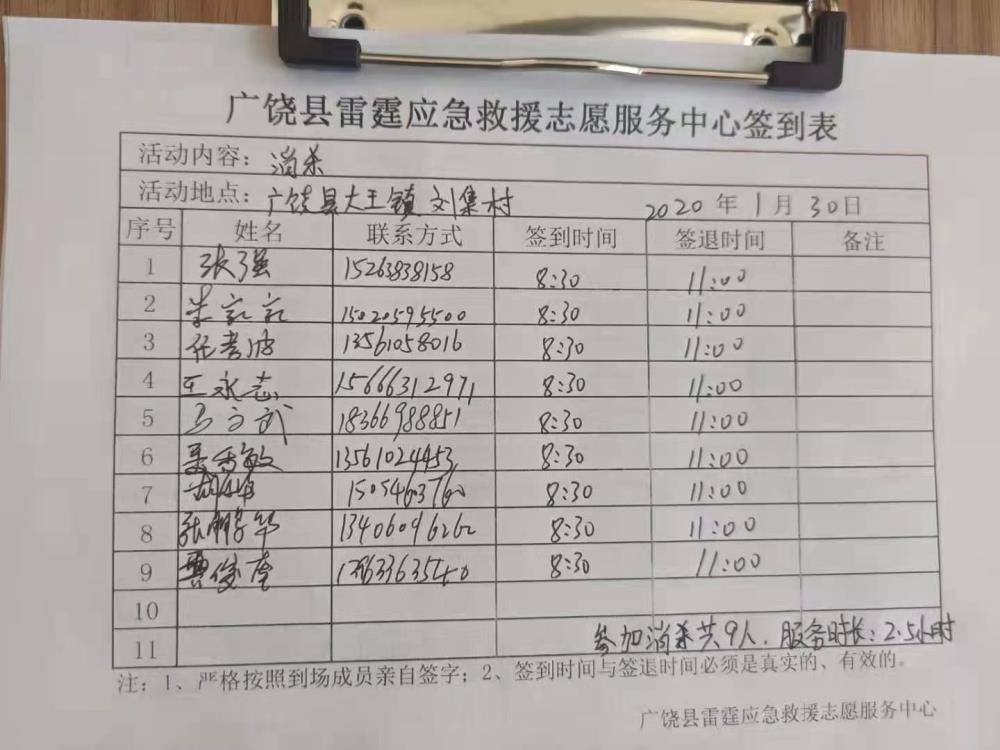 广饶县雷霆应急救援志愿服务中心签到表
活动内容：消杀
活动地点：广饶县大王镇刘集村 2020年1月30日
序号 姓名 联系方式 签到时间 签退时间 备注
1 张强 15263838158 8:30 11:00
2 15020595500 8:30 11:00
3 任孝波 13561058016 8:30 11:00
4 王永志 15666312971 8:30 11:00
5 马方武 18366988851 8:30 11:00
6 13561024453 8:30 11:00
7 15054603760 8:30 11:00
8 张鹏华 13406096262 8:30 11:00
9 8:30 11:00
10
11 参加消杀共9人，服务时长：2.5小时
注：1、严格按照到场成员亲自签字；2、签到时间与签退时间必须是真实的、有效的。
广饶县雷霆应急救援志愿服务中心